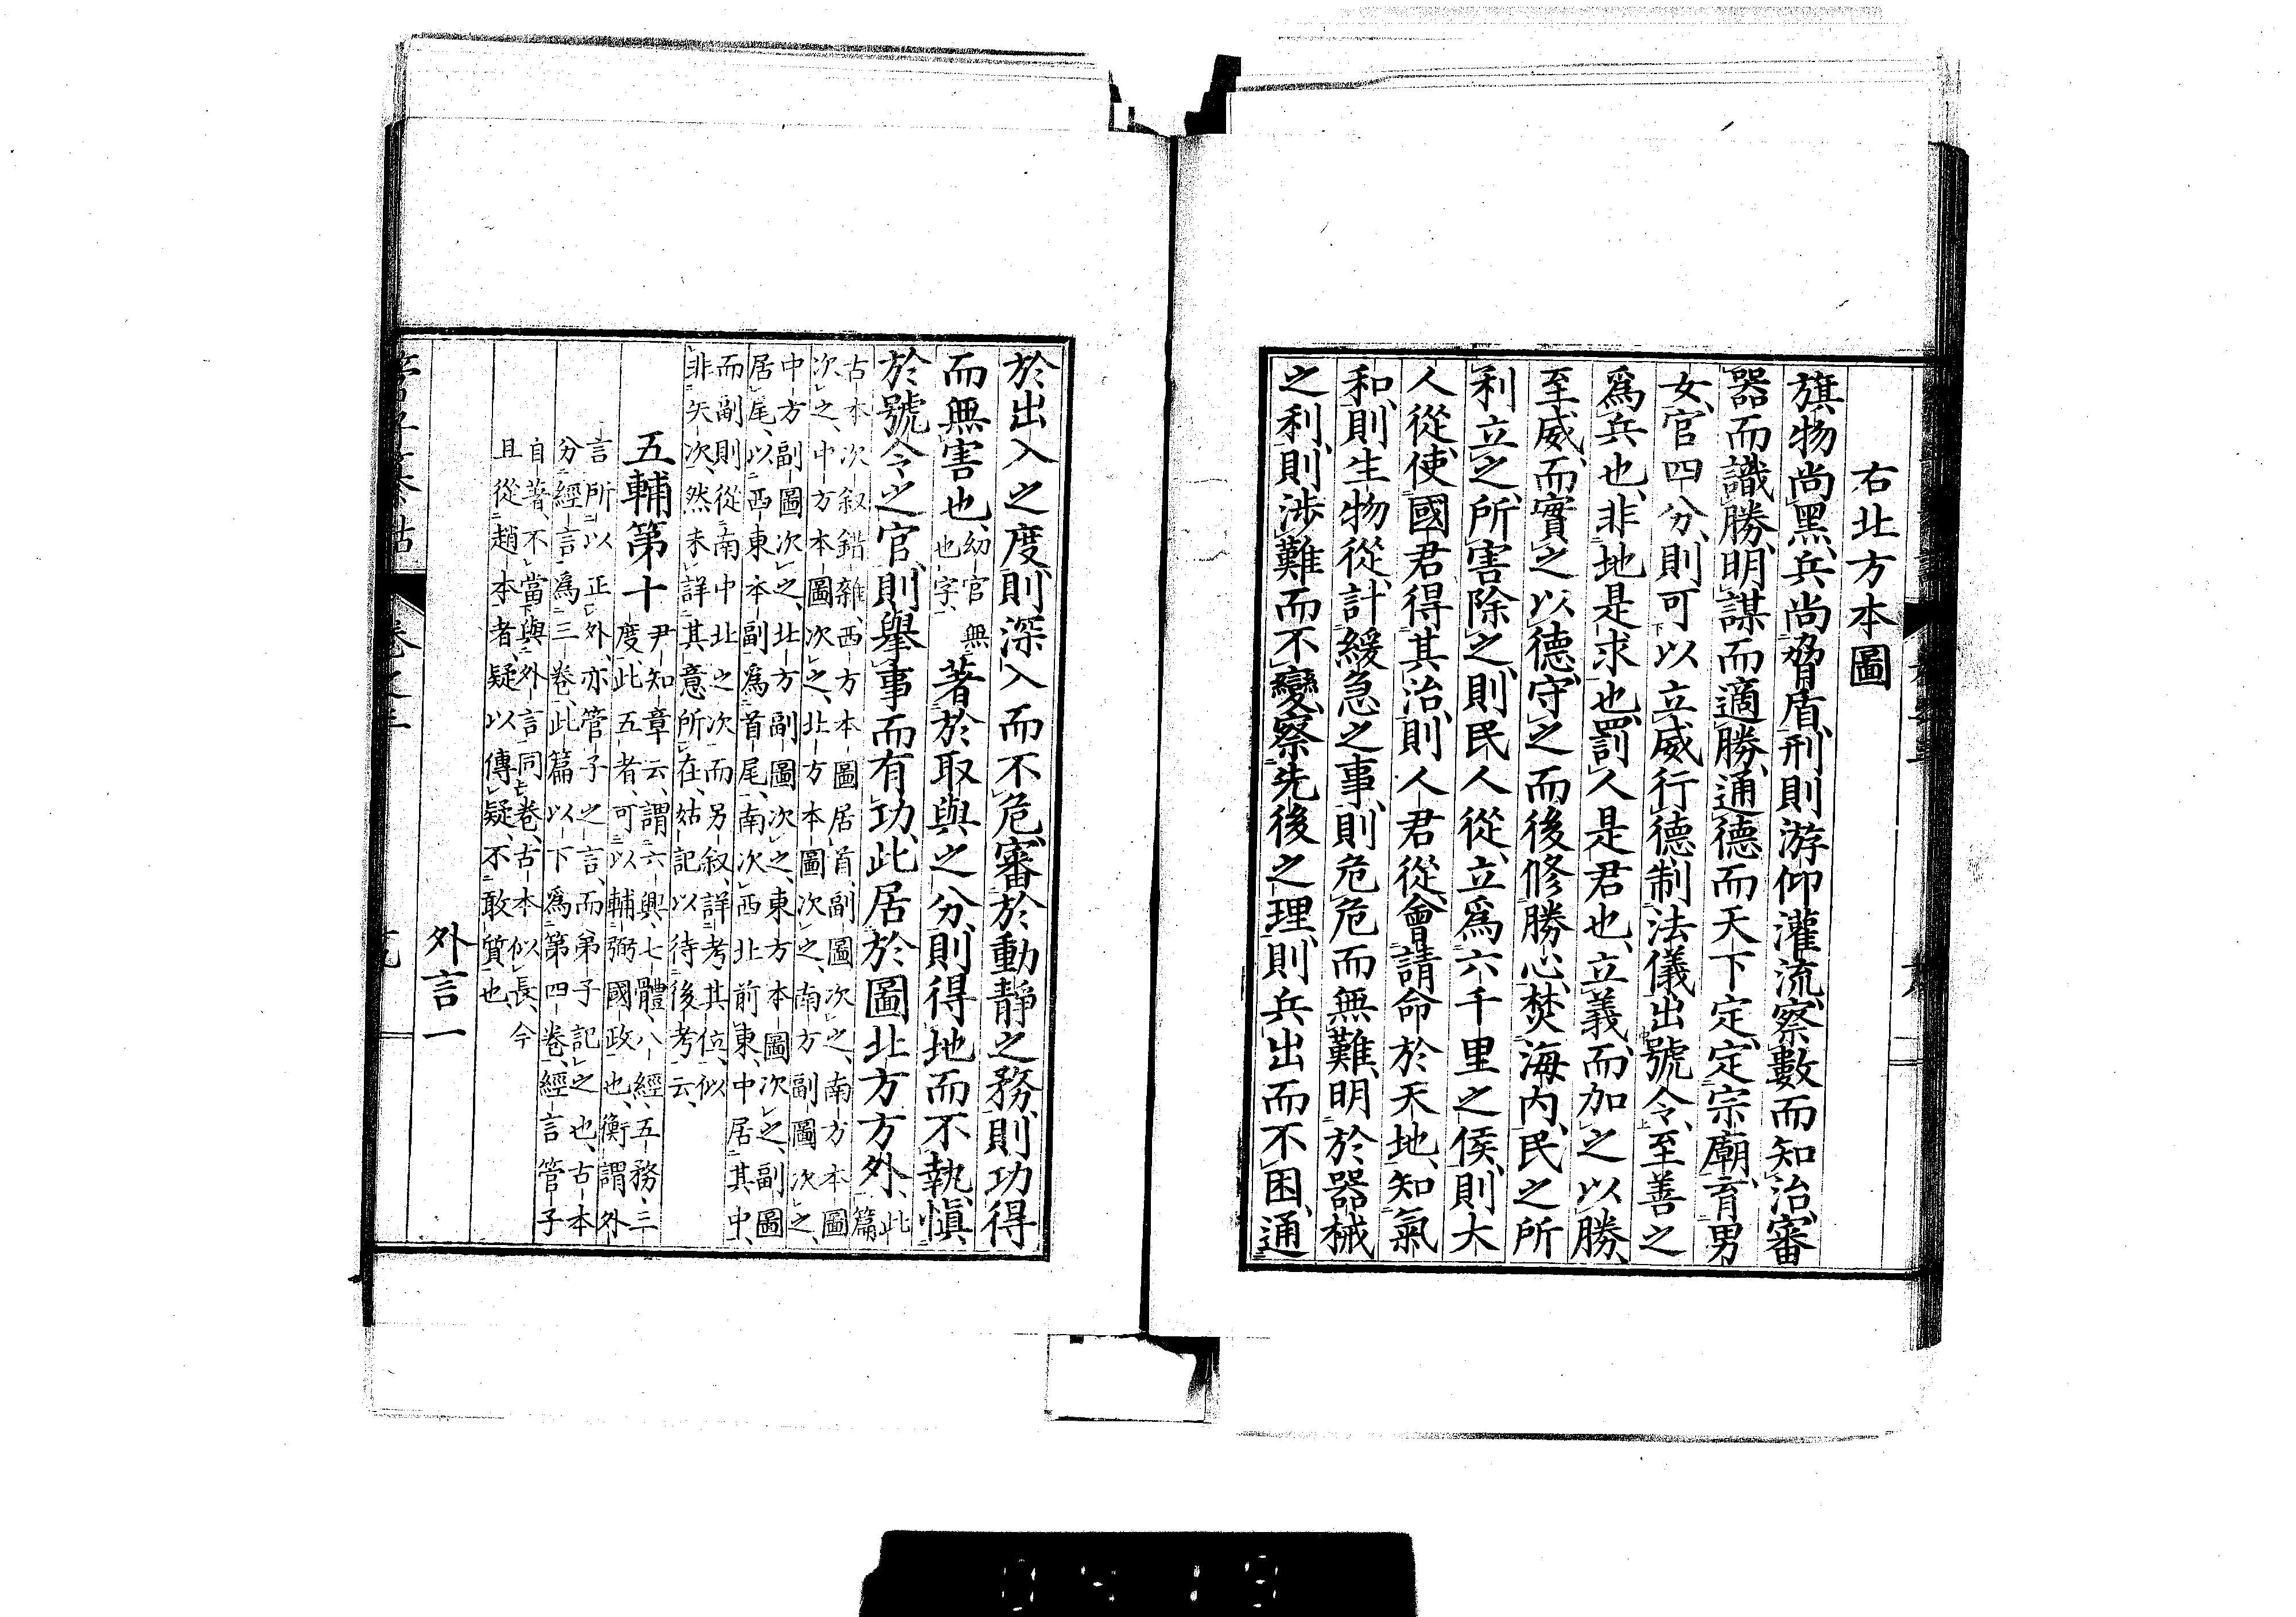 右北方本圖
旗物尚黑、兵尚脅盾、刑則游仰灌流、察數而知治、審
器而識勝、明謀而適勝、通德而天下定、定宗廟、育男
女、官四分、則可以立威行德、制法儀、出號令、至善之
爲兵也、非地是求也、罰人是君也、立義而加之以勝、
至威而實之以德、守之而後修勝心、焚海內、民之所
利立之、所害除之、則民人從、立爲六千里之侯、則大
人從、使國君得其治、則人君從、會請命於天地、知氣
和、則生物從、計緩急之事、則危危而無難、明於器械
之利、則涉難而不變、察先後之理、則兵出而不困、通
於出入之度、則深入而不危、審於動靜之務、則功得
而無害也、幼官無也字、著於取與之分、則得地而不執、愼
於號令之官、則擧事而有功、此居於圖北方方外、此篇
古本次叙錯雜、西方本圖居首、副圖次之、南方本圖
次之、中方本圖次之、北方本圖次之、南方副圖次之、
中方副圖次之、北方副圖次之、東方本圖次之、副圖
居尾、以西東本副爲首尾、南次西北前東、中居其中、
而副則從南中北之次而另叙、詳考其位、似
非矢次、然未詳其意所在、姑記以待後考云、
五輔第十
尹知章云、謂六興、七體、八經、五務、三
度、此五者、可以輔弼國政也、衡謂外
言所以正外、亦管子之言、而弟子記之也、古本
分經言爲三卷、此篇以下爲第四卷、經言管子
自著、不當與外言同卷、古本似長、今
且從趙本者、疑以傳疑、不敢質也、
外言一
管子纂詁 卷之三